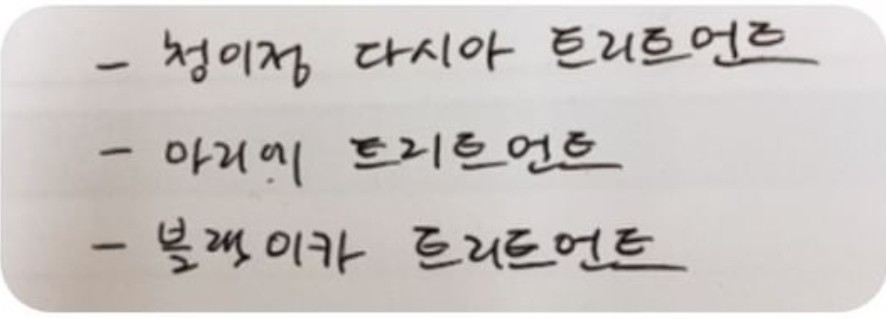 - 청이정 다시아 트리트먼트
- 아리에 트리트먼트
- 블랙이카 트리트먼트